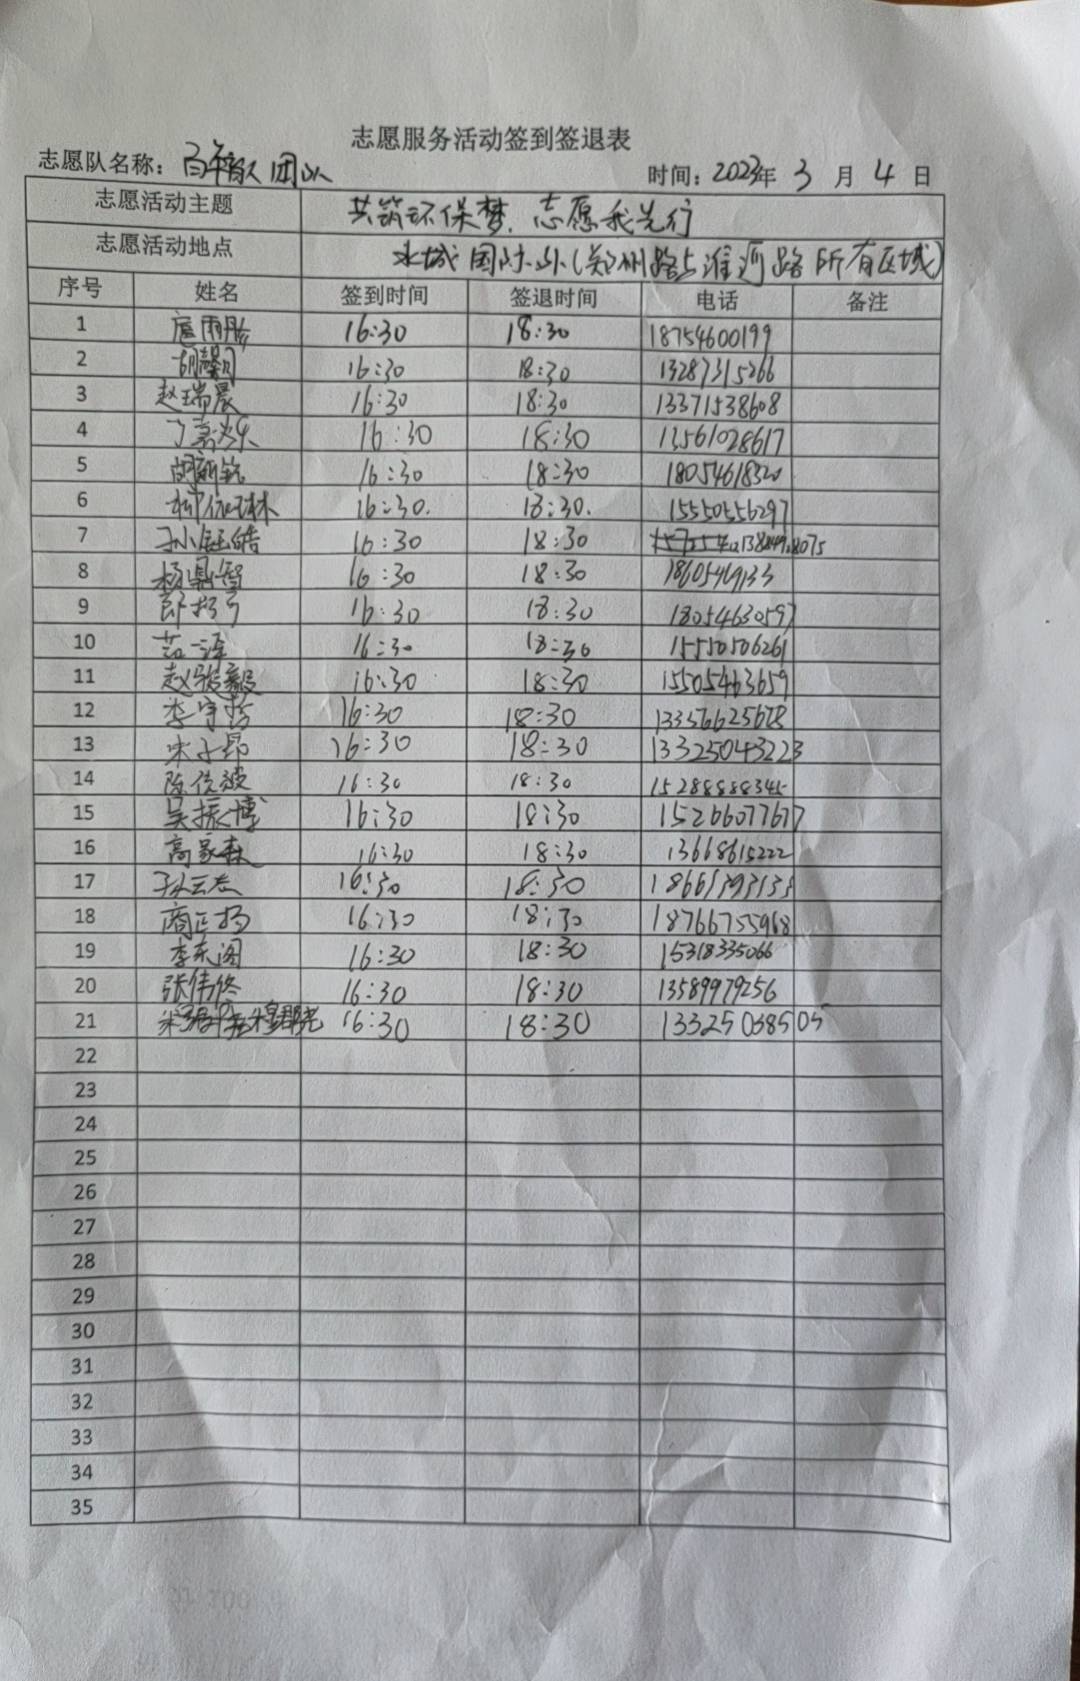 志愿服务活动签到签退表
志愿队名称：百年育人团队 时间：2023年 3 月 4 日
志愿活动主题 共筑环保梦，志愿我先行
志愿活动地点 水城国际小(郑州路与淮河路所有区域)
序号 姓名 签到时间 签退时间 电话 备注
1 16:30 18:30 18754600199
2 16:30 18:30 13287315266
3 赵瑞晨 16:30 18:30 13371538608
4 16:30 18:30 13561028617
5 16:30 18:30 18054618320
6 16:30. 18:30. 15550556297
7 16:30 18:30
8 杨鼎智 16:30 18:30
9 16:30 18:30 18054630597
10 16:30 18:30 15550506261
11 赵骏毅 16:30 18:30 15505463659
12 16:30 18:30 13356625678
13 宋子昂 16:30 18:30 13325043223
14 16:30 18:30
15 吴振博 16:30 18:30 15266077677
16 高家森 16:30 18:30 13668615222
17 16:30 18:30
18 商正杨 16:30 18:30 18766755968
19 李东阁 16:30 18:30 15318335066
20 16:30 18:30 13589979256
21 16:30 18:30 13325038505
22
23
24
25
26
27
28
29
30
31
32
33
34
35